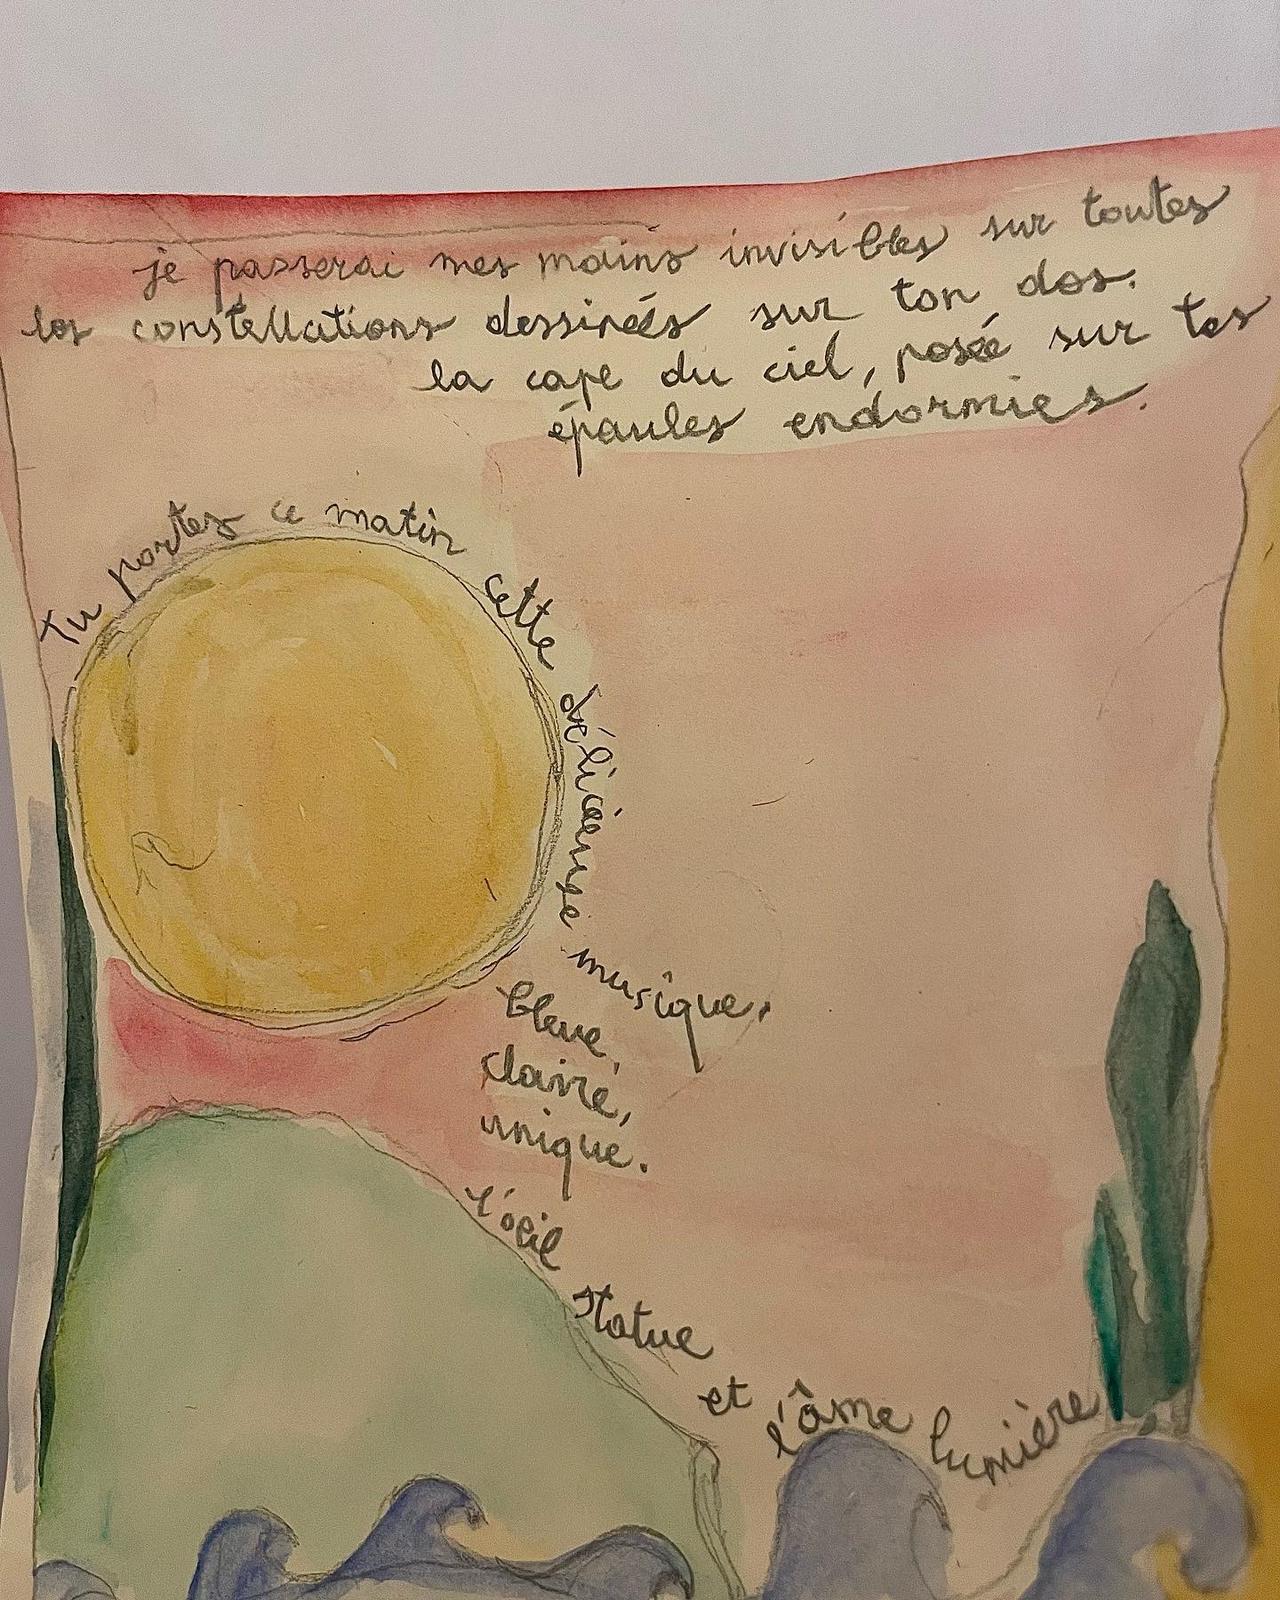 je passerai mes mains invisibles sur toutes
les constellations dessinées sur ton dos.
la cape du ciel, posée sur tes
épaules endormies.
Tu portes ce matin cette délicieuse musique,
bleue,
claire,
unique.
l'œil statue et l'âme lumière